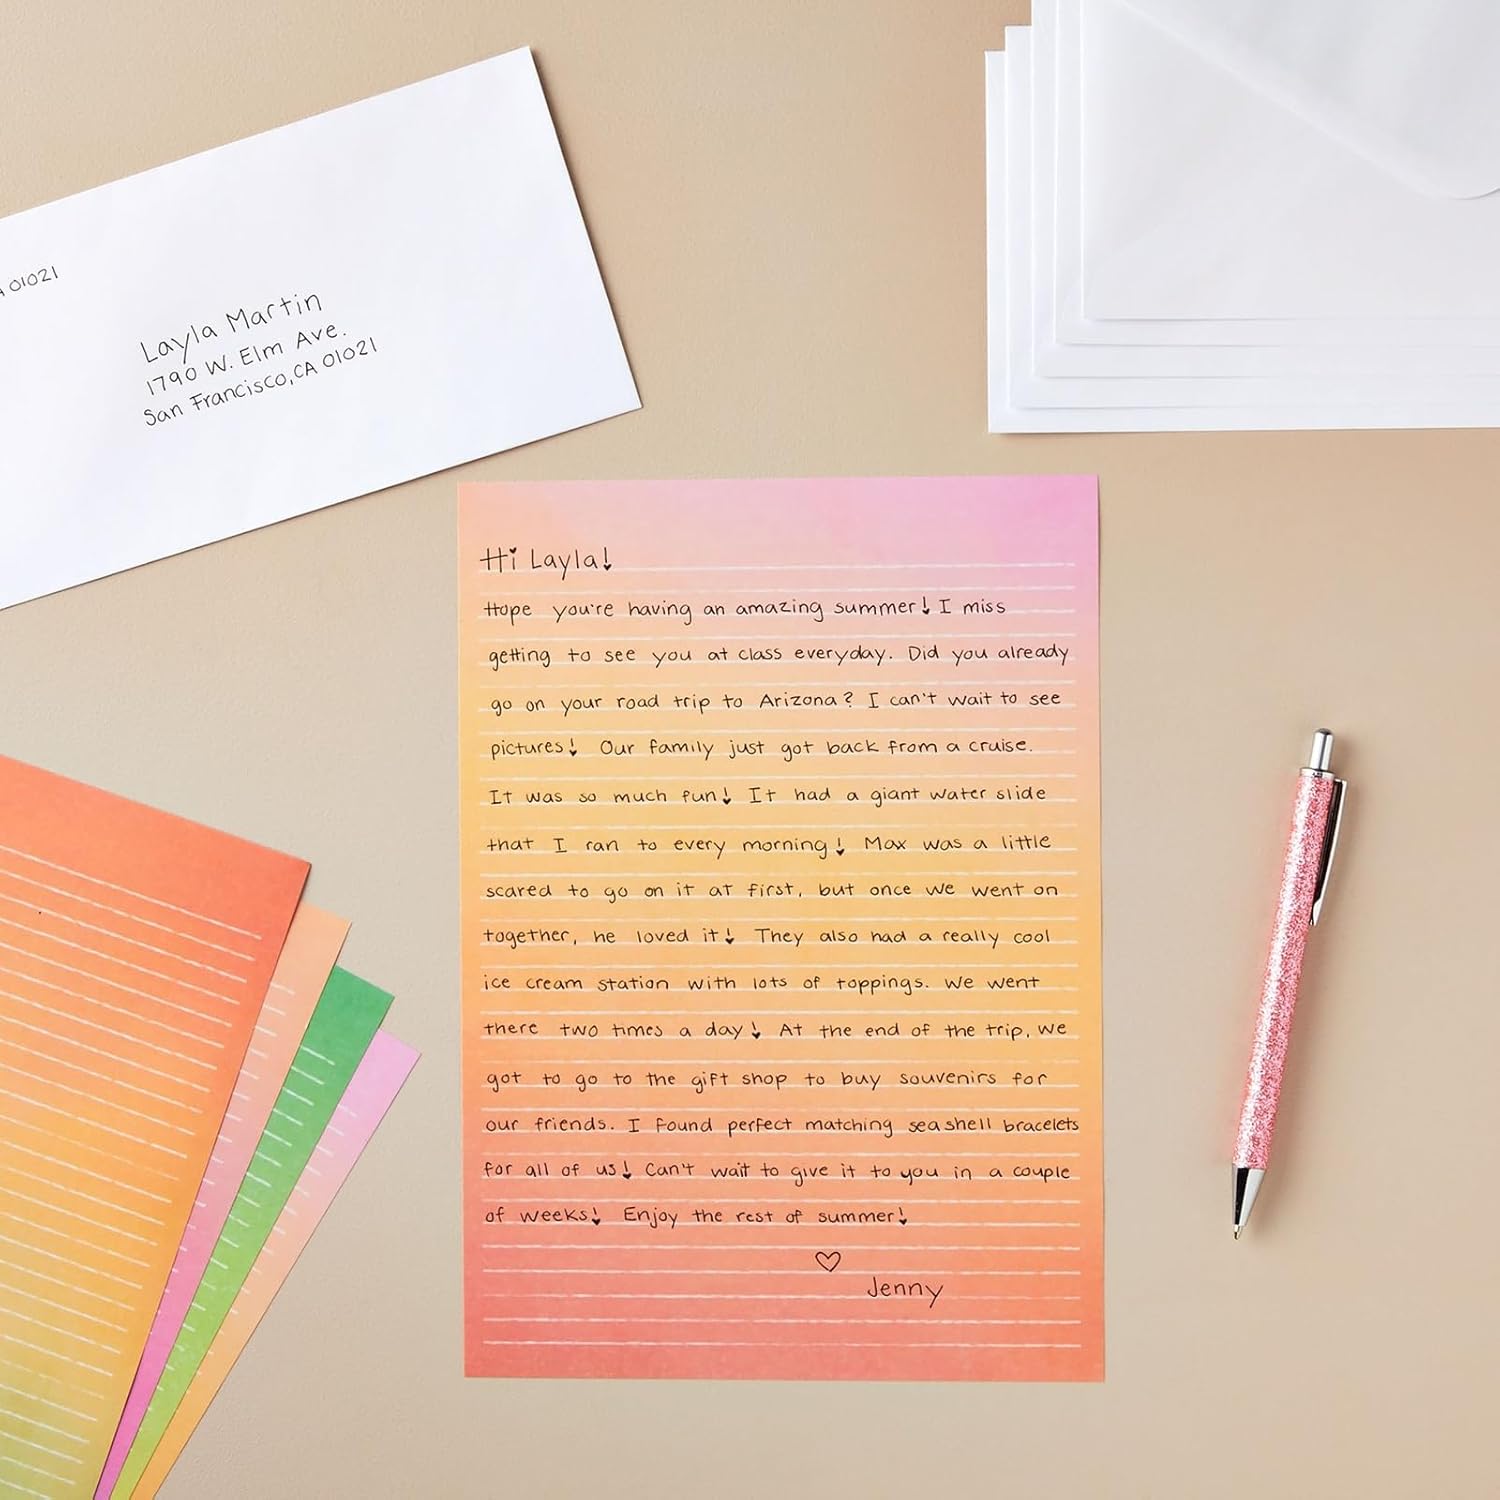 A 01021
Layla Martin
1790 W. Elm Ave.
San Francisco, CA 01021
Hi Layla!
Hope you're having an amazing summer! I miss
getting to see you at class everyday. Did you already
go on your road trip to Arizona? I can't wait to see
pictures! Our family just got back from a cruise.
It was so much fun! It had a giant water slide
that I ran to every morning! Max was a little
scared to go on it at first, but once we went on
together, he loved it! They also had a really cool
ice cream station with lots of toppings. We went
there two times a day! At the end of the trip, we
got to go to the gift shop to buy souvenirs for
our friends. I found perfect matching seashell bracelets
for all of us! Can't wait to give it to you in a couple
of weeks! Enjoy the rest of summer!
♡
Jenny